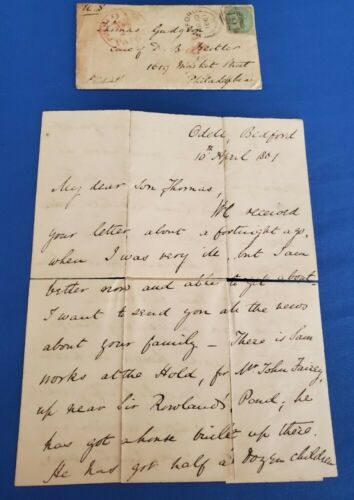 U.S
PAID
Thomas Gudgeon
Care of D. B.
1619 Market Street
Philadelphia
Odell, Bedford
10th April 1861
My dear Son Thomas,
We received
your letter about a fortnight ago,
when I was very ill, but I am
better now and able to get about.
I want to send you all the news
about your family – There is Sam
works at the Hold, for Mr John Fairey,
up near Sir Rowland's Pond; he
has got a house built up there.
He has got half a dozen children